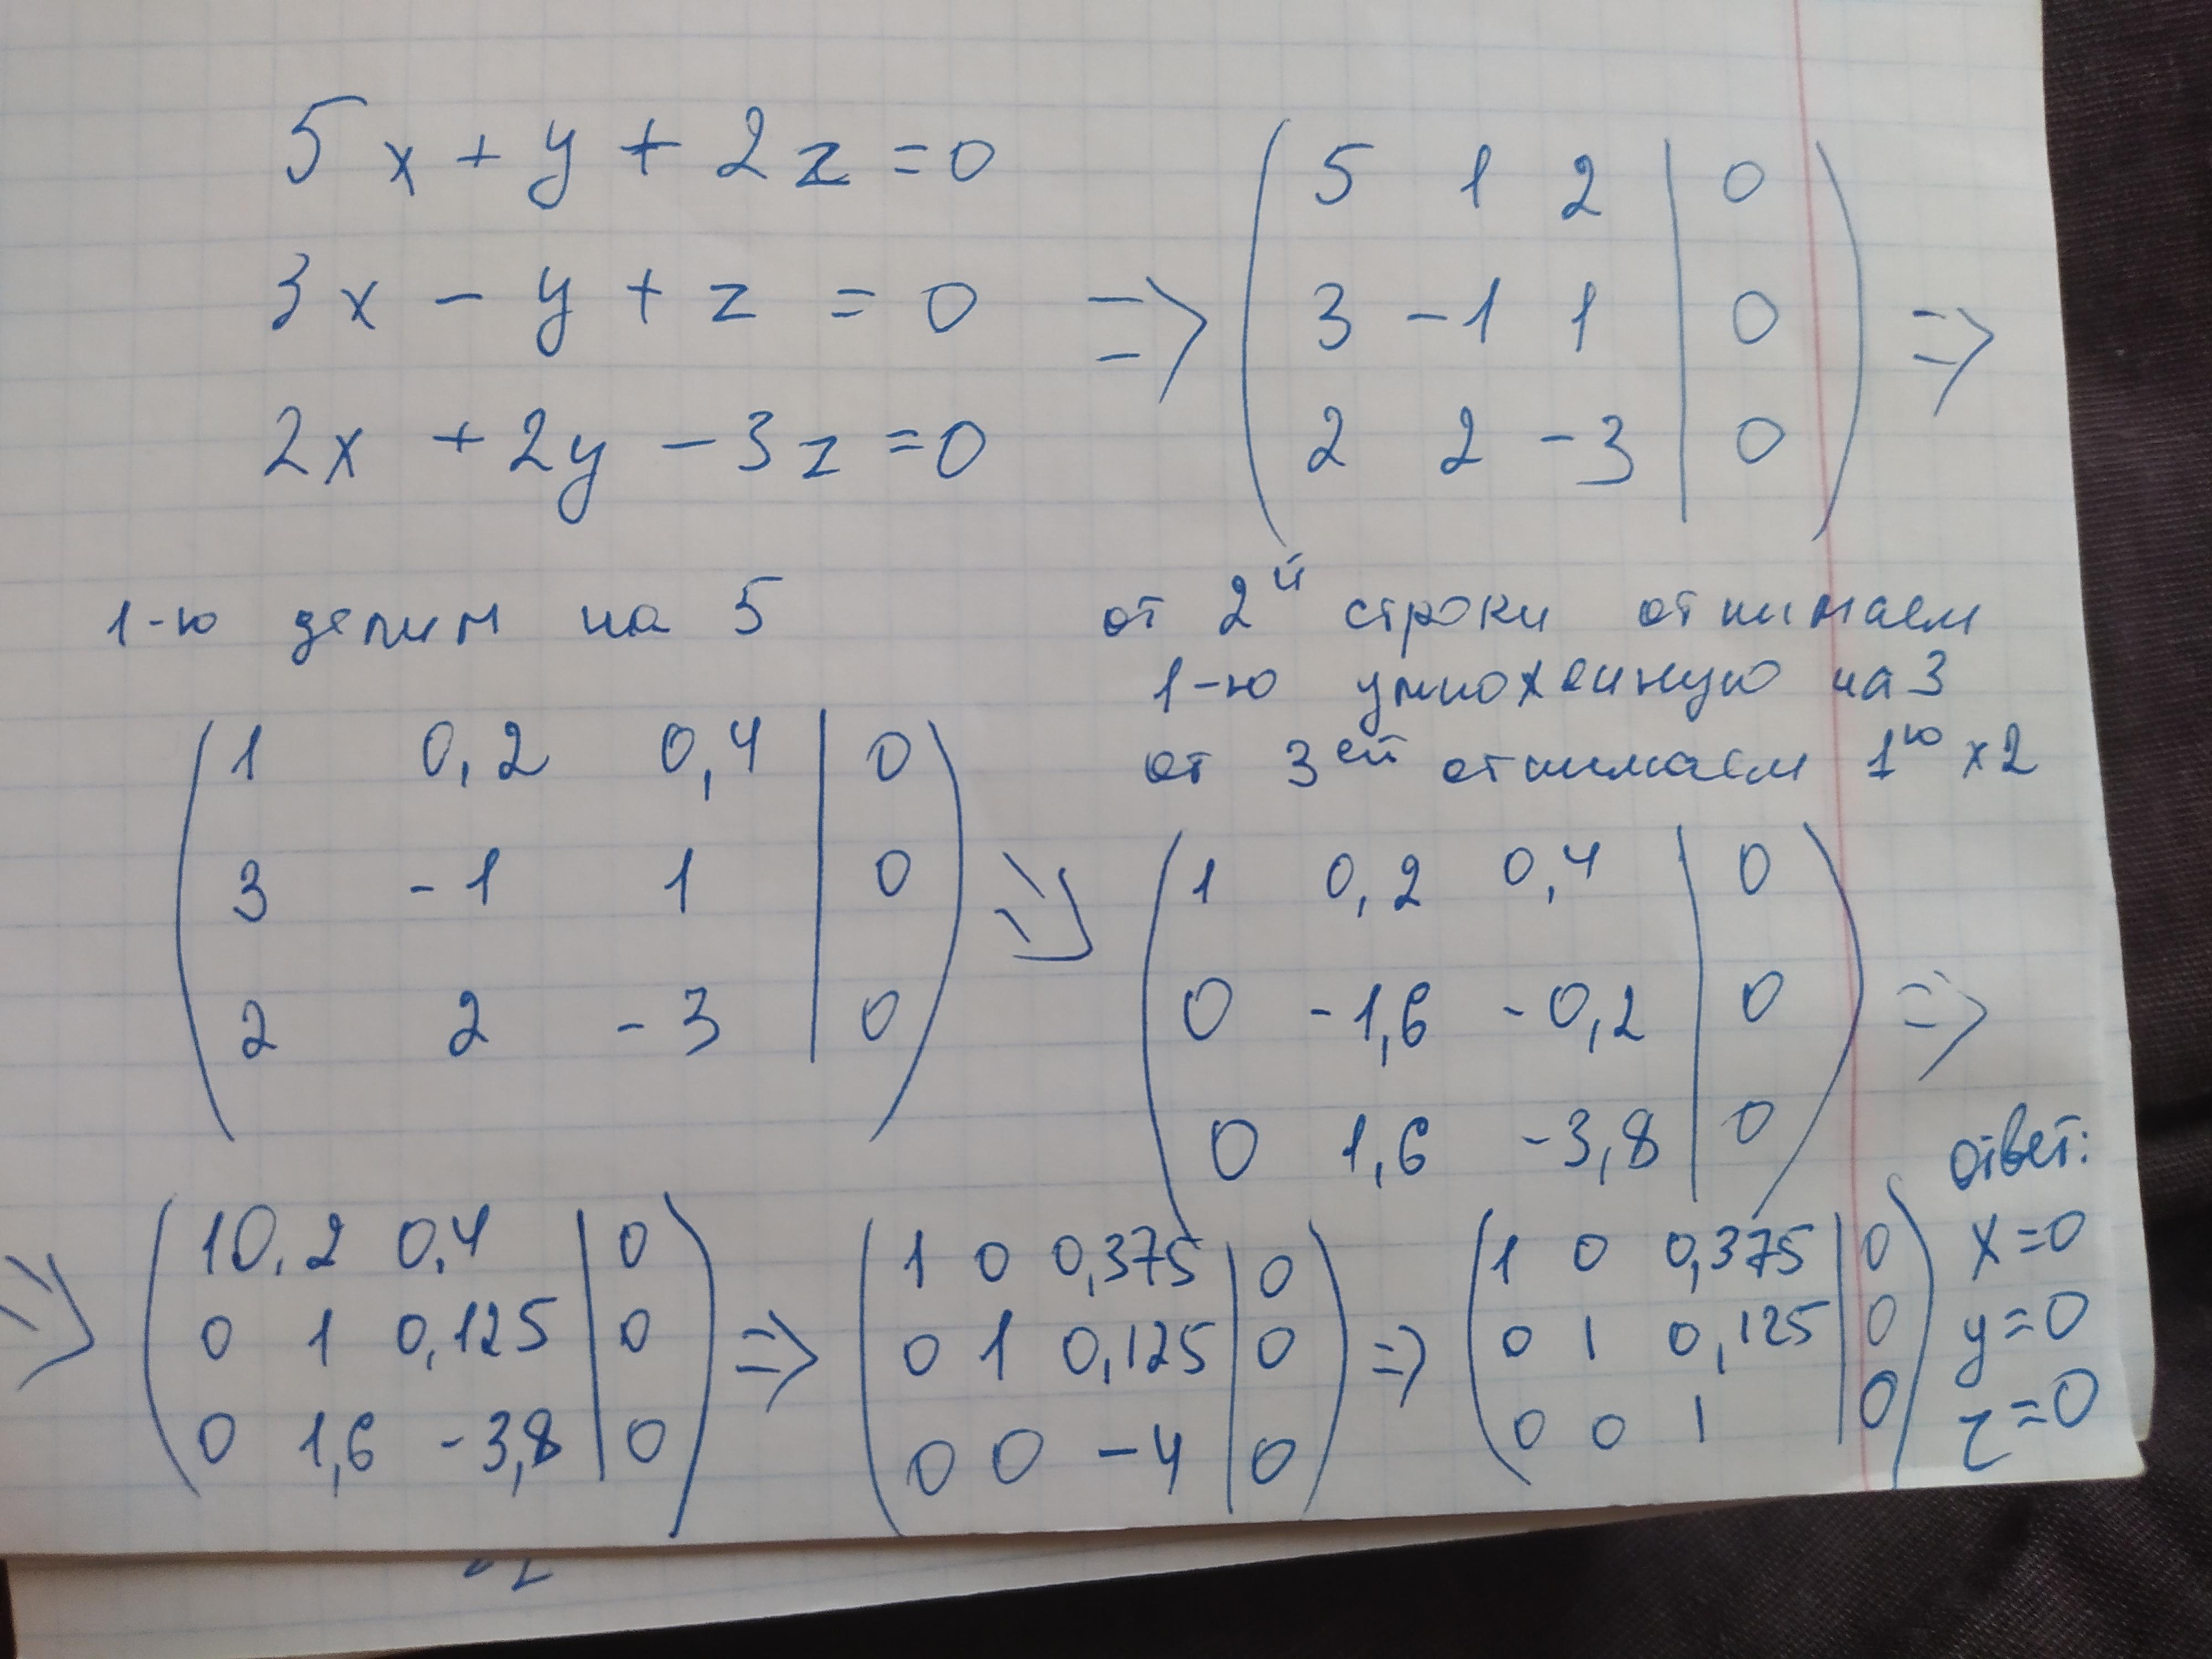 5x + y + 2z = 0
3x - y + z = 0
2x + 2y - 3z = 0
=>
5 1 2 | 0
3 -1 1 | 0
2 2 -3 | 0
=>
1-ю делим на 5
1 0,2 0,4 | 0
3 -1 1 | 0
2 2 -3 | 0
=>
от 2й строки отнимаем
1-ю умноженную на 3
от 3ей отнимаем 1ю x2
1 0,2 0,4 | 0
0 -1,6 -0,2 | 0
0 1,6 -3,8 | 0
=>
=>
1 0,2 0,4 | 0
0 1 0,125 | 0
0 1,6 -3,8 | 0
=>
1 0 0,375 | 0
0 1 0,125 | 0
0 0 -4 | 0
=>
1 0 0,375 | 0
0 1 0,125 | 0
0 0 1 | 0
ответ:
x=0
y=0
z=0